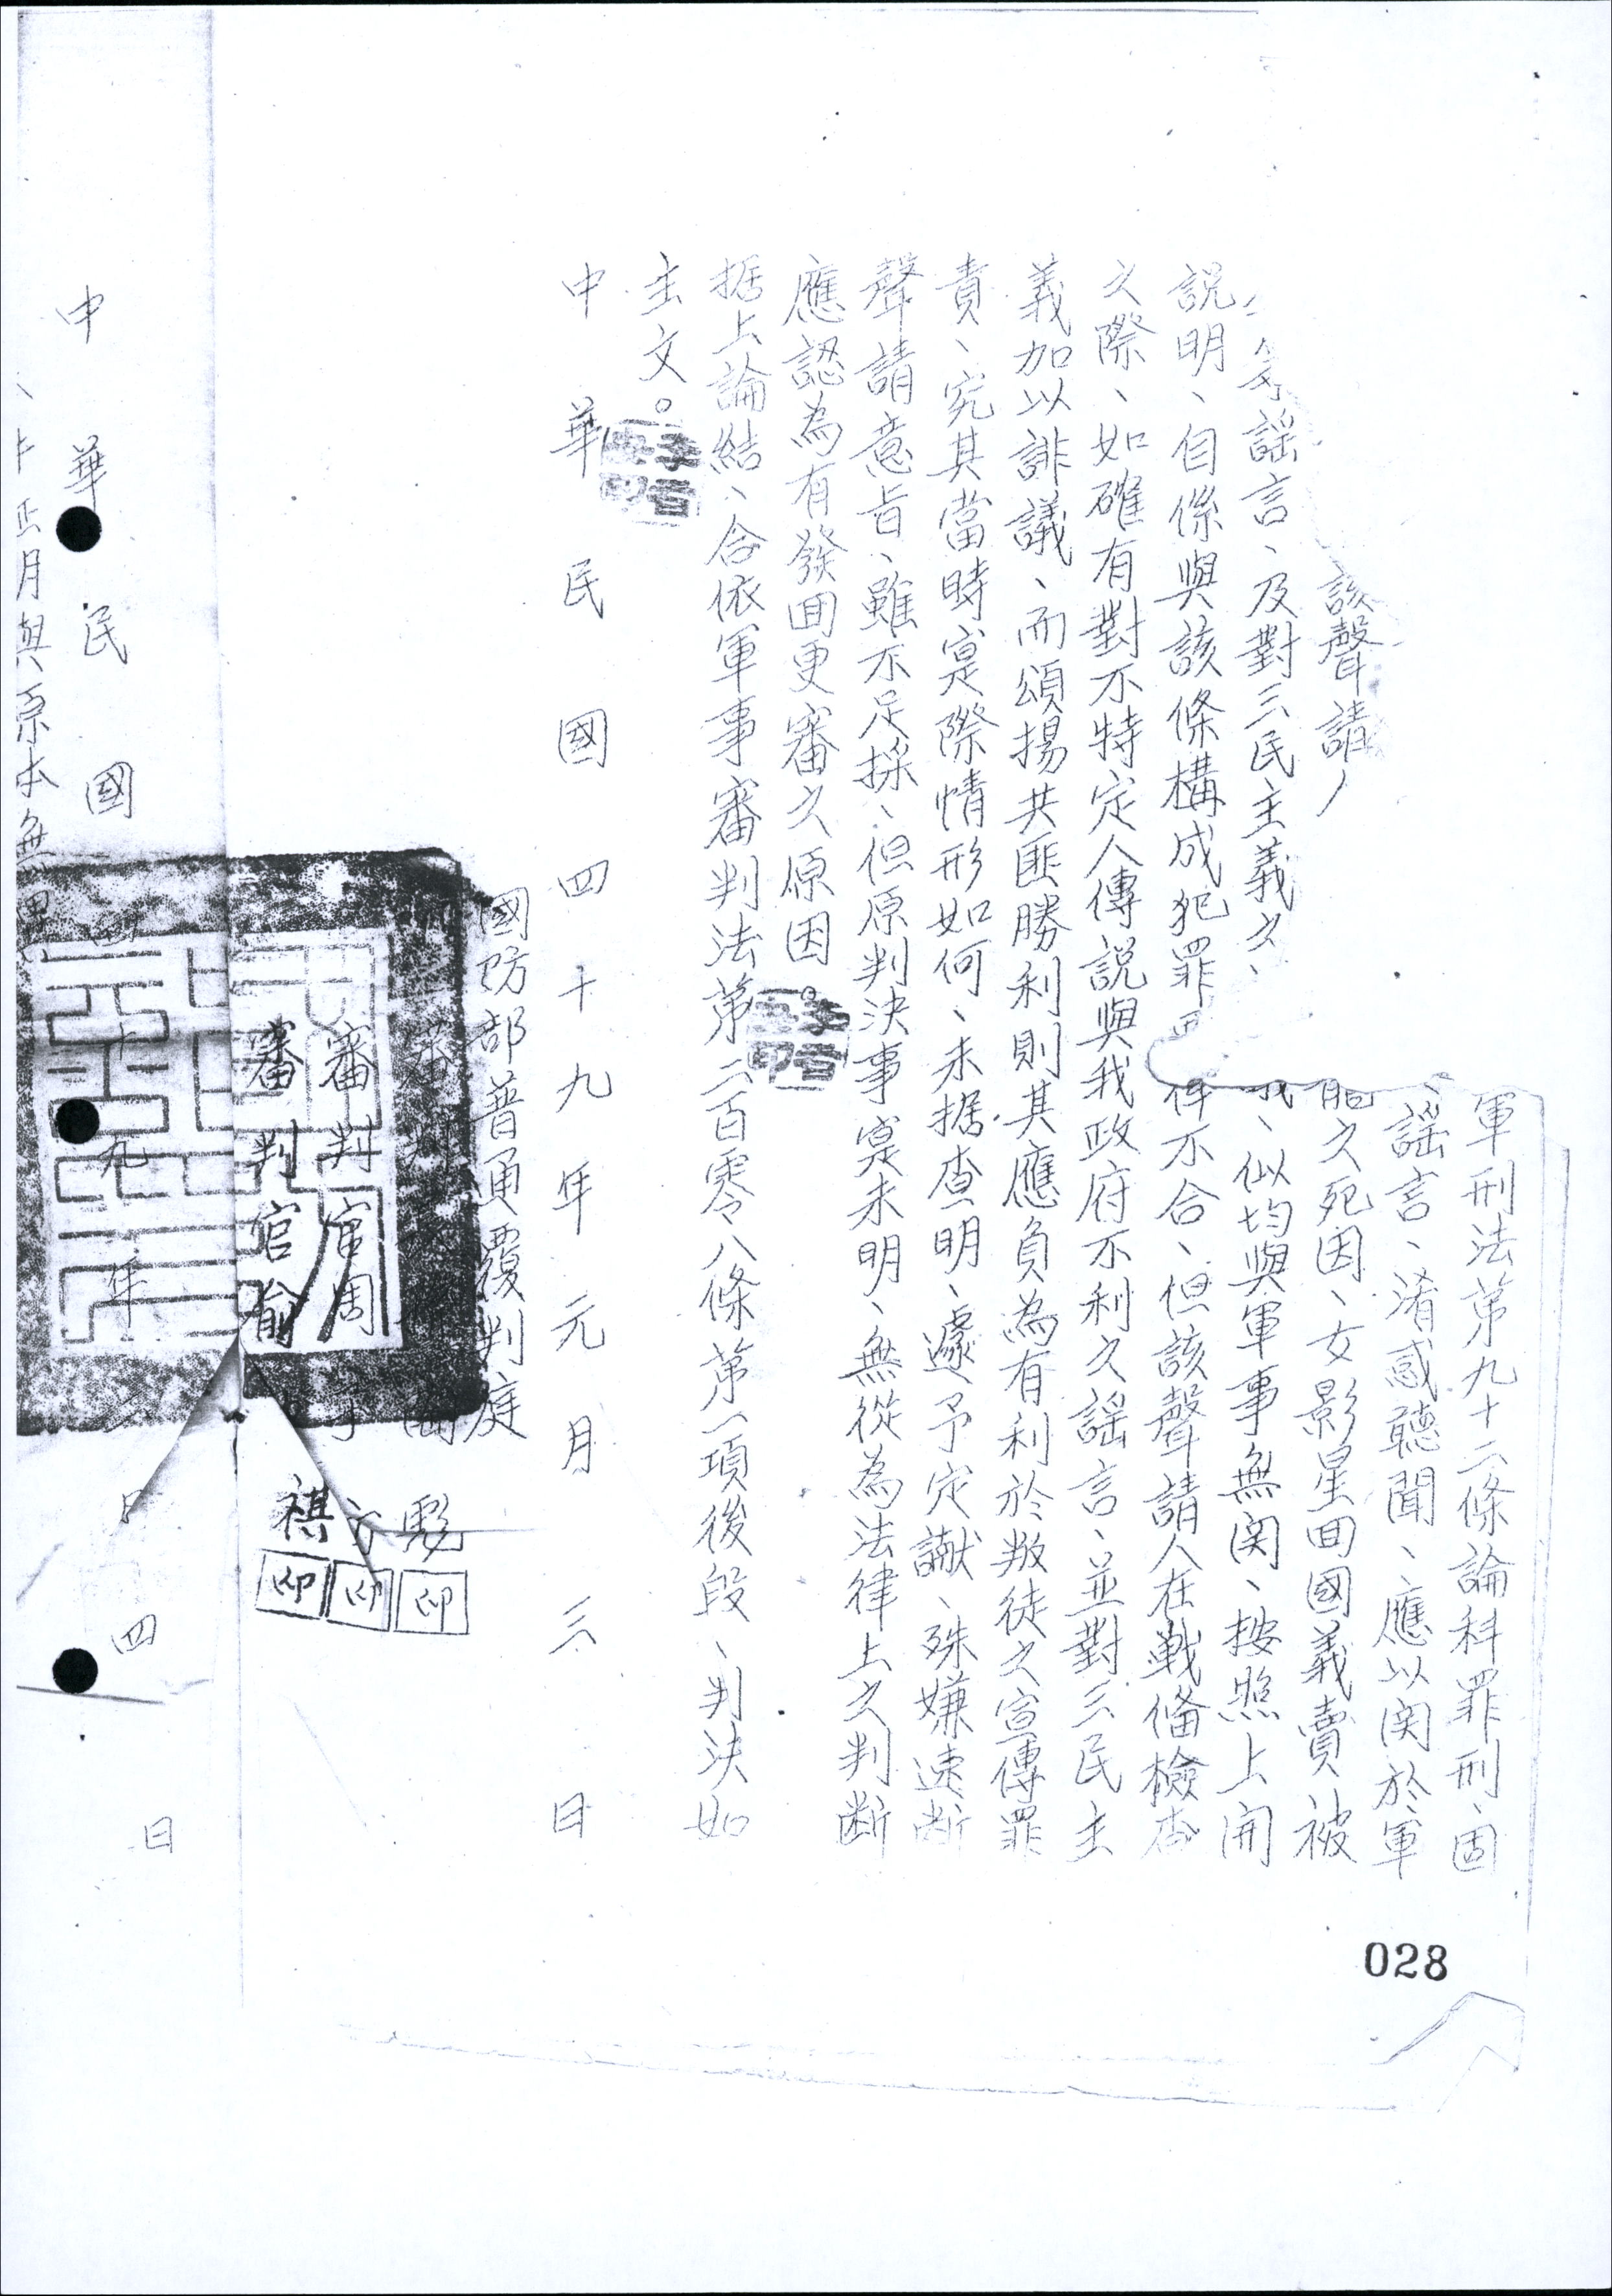 軍刑法第九十二條論科罪刑、固
、謠言、淆惑聽聞、應以関於軍
該聲請人
胞之死因、女影星回國義賣被
謠言、及對三民主義之、
、似均與軍事無関、按照上開
說明、自係與該條構成犯罪
件不合、但該聲請人在戦備檢查
之際、如確有對不特定人傳說與我政府不利之謠言、並對三民主
義加以誹議、而頌揚共匪勝利則其應負為有利於叛徒之宣傳罪
責、究其當時寔際情形如何、未据查明、遽予定讞、殊嫌速断
聲請意旨、雖不足採、但原判決事寔未明、無從為法律上之判断
應認為有發回更審之原因。
据上論結、合依軍事審判法第二百零八條第一項後段、判決如
主文。
中華民國四十九年元月三日
國防部普通覆判庭
審判官周
審判官俞 祺
印
印
印
中華民國四十九年 月四日
正月與原本無異
028